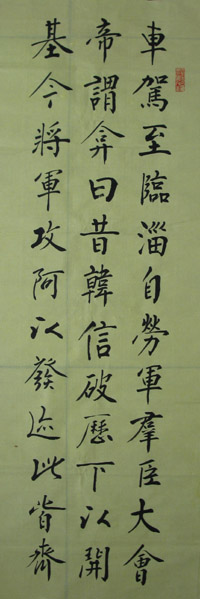 車駕至臨淄自勞軍羣臣大會
帝謂弇曰昔韓信破歷下以開
基今將軍攻祝阿以發迹此皆齊